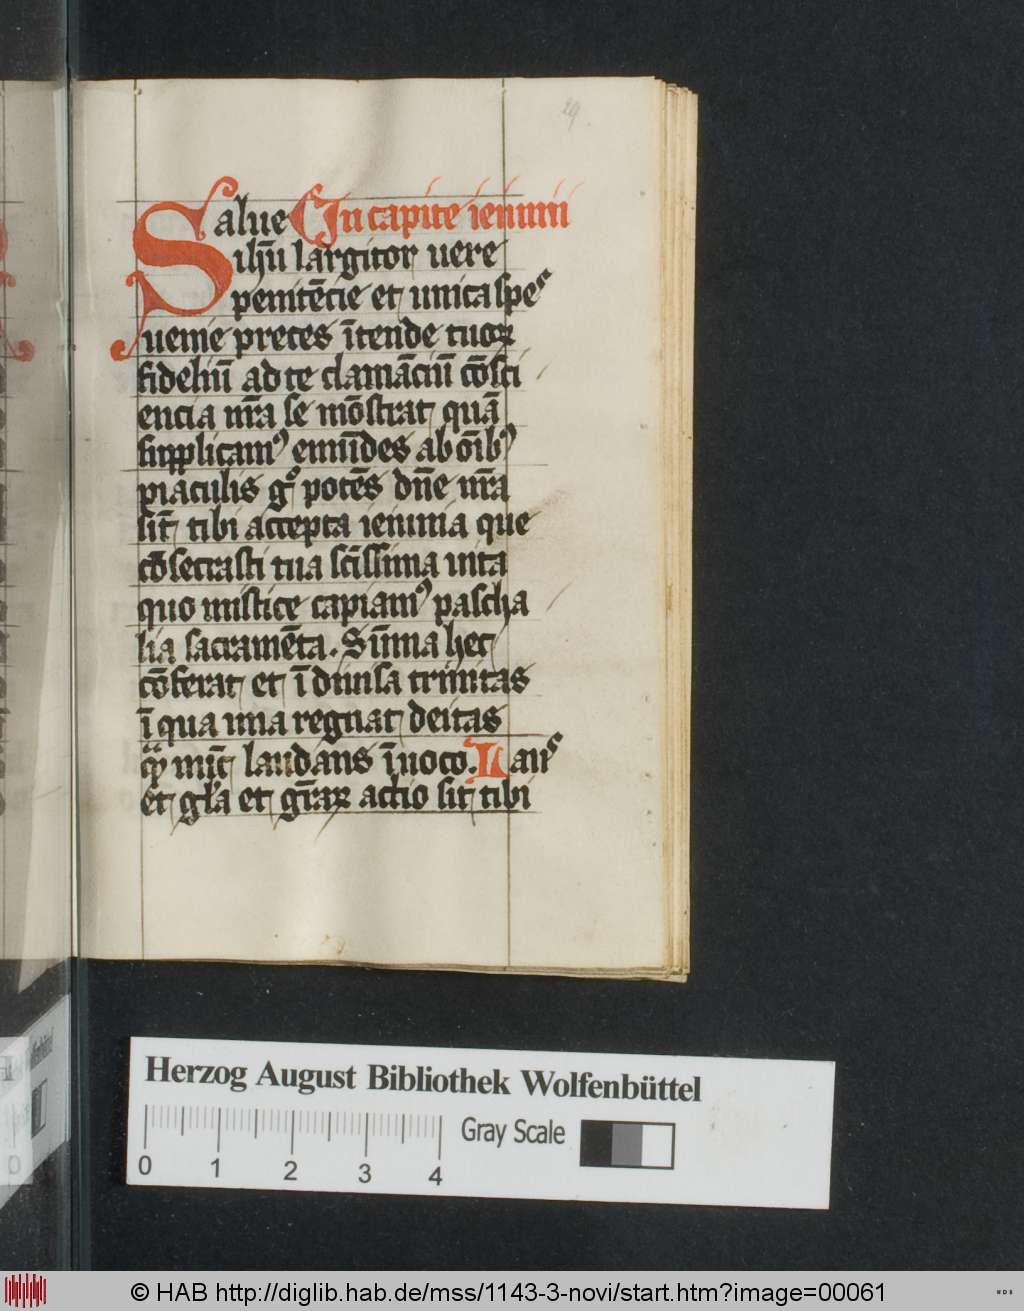 29
Salue In capite ieiunii
ihū largitor uere
penitēcie et unica spes
uenie preces ītende tuoꝝ
fideliū ad te clamāciū cōsci
encia nr̄a se mōstrat quā
supplicamꝰ emūdes ab oībꝰ
piaculis gͦ potēs dn̄e nr̄a
sit̄ tibi accepta ieiunia que
cōsecrasti tua scīssima uita
quo mistice capiamꝰ pascha
lia sacramēta. Sūma hec
cōferat et īdiuisa trinitas
ī qua una regnat deitas
laudans īuoco. Laus
et gl̄a et gr̄aꝝ actio sit tibi
Herzog August Bibliothek Wolfenbüttel
Gray Scale
0 1 2 3 4
© HAB http://diglib.hab.de/mss/1143-3-novi/start.htm?image=00061